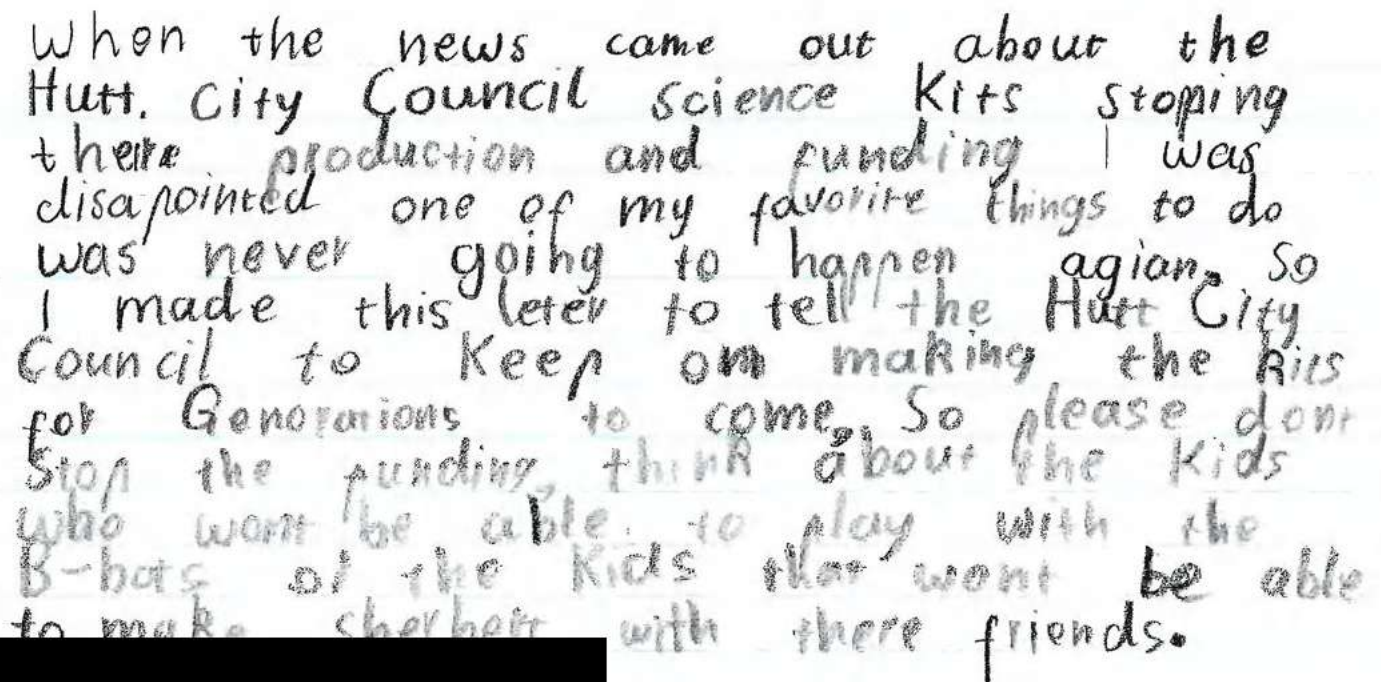 When the news came out about the
Hutt. City Council Science Kits stoping
there production and funding I was
disapointed one of my favorite things to do
was never going to happen agian. So
I made this leter to tell the Hutt City
Council to Keep on making the kits
for Generations to come. So please dont
Stop the funding, think about the Kids
who wont be able to play with the
B-bots or the Kids that wont be able
to make sherbert with there friends.